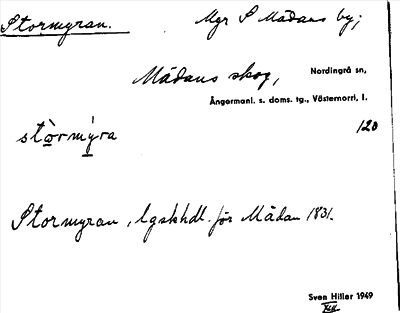 Stormyran. Mgr S Mådans by;
Mådans skog, Nordingrå sn,
Ångermanl. s. doms. tg., Västernorrl. l.
stò̱rmý̱ra 120
Stormyran, lgskhdl. för Mådan 1831.
Sven Hiller 1949
VIII